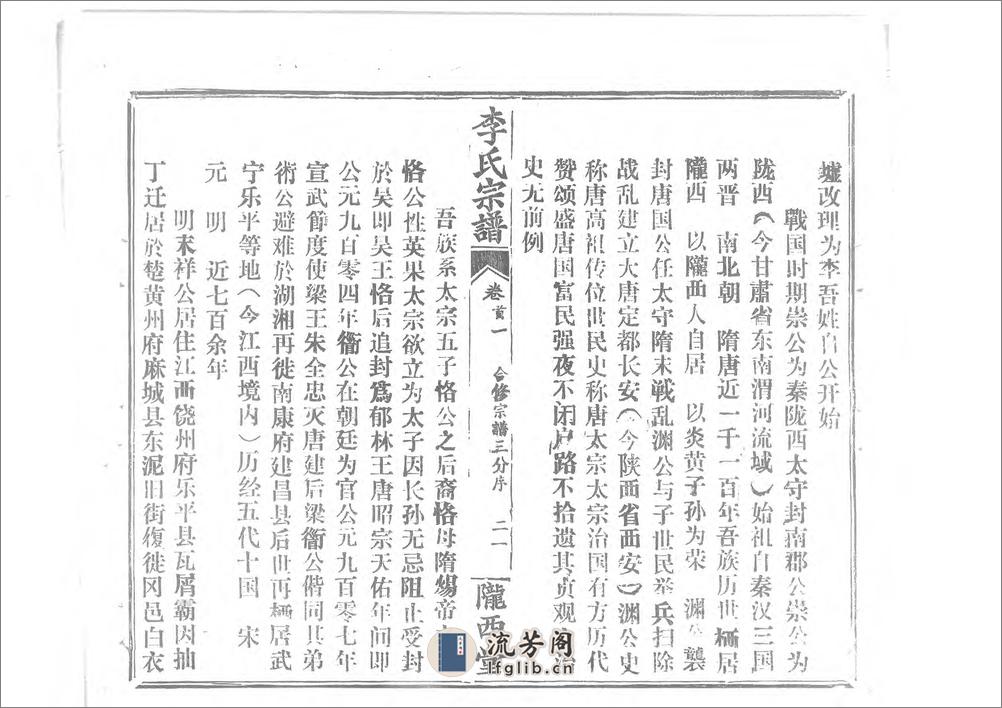 墟改理为李吾姓自公开始
戰国时期崇公为秦陇西太守封南郡公崇公为
陇西(今甘肃省东南渭河流域)始祖自秦汉三国
两晋 南北朝 隋唐近一千一百年吾族历世栖居
隴西 以隴西人自居 以炎黄子孙为荣 渊公襲
封唐国公任太守隋末戦乱渊公与子世民举兵扫除
战乱建立大唐定都长安(今陕西省西安)渊公史
称唐高祖传位世民史称唐太宗太宗治国有方历代
赞颂盛唐国富民强夜不闭户路不拾遗其贞观 治
史无前例
李氏宗譜
卷首一
合修宗譜三分序
二一
隴西堂
吾族系太宗五子恪公之后裔恪母隋煬帝
恪公性英果太宗欲立为太子因长孙无忌阻止受封
於吴即吴王恪后追封爲郁林王唐昭宗天佑年间即
公元九百零四年衞公在朝廷为官公元九百零七年
宣武節度使梁王朱全忠灭唐建后梁衞公偕同其弟
術公避难於湖湘再徙南康府建昌县后世再栖居武
宁乐平等地(今江西境内)历经五代十国 宋
元 明 近七百余年
明末祥公居住江西饶州府乐平县瓦屑霸因抽
丁迁居於楚黄州府麻城县东泥旧街復徙冈邑白衣
流芳阁
lfglib.cn